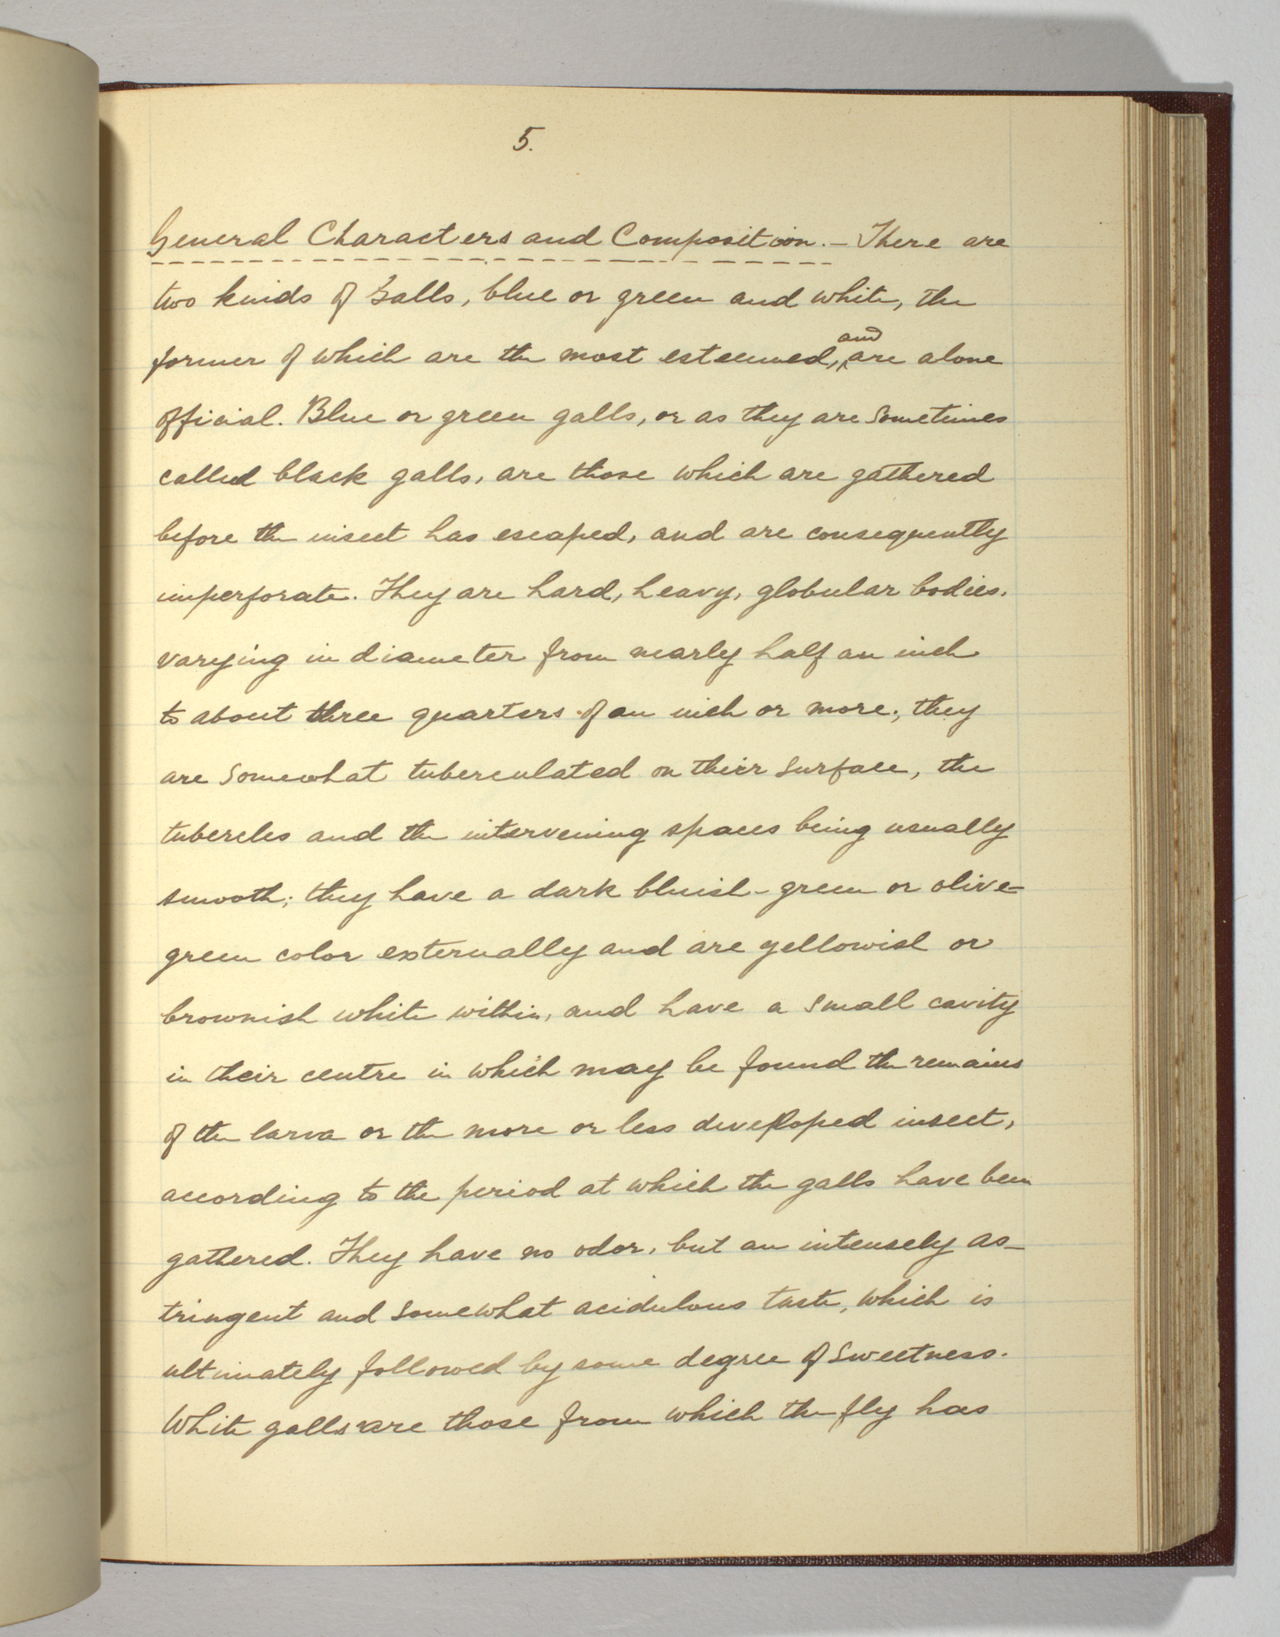 5.
General Characters and Composition. – There are
two kinds of Galls, blue or green and white, the
former of which are the most esteemed, and are alone
official. Blue or green galls, or as they are sometimes
called black galls, are those which are gathered
before the insect has escaped, and are consequently
imperforate. They are hard, heavy, globular bodies.
varying in diameter from nearly half an inch
to about three quarters of an inch or more; they
are somewhat tuberculated on their surface, the
tubercles and the intervening spaces being usually
smooth; they have a dark bluish-green or olive=
green color externally and are yellowish or
brownish white within, and have a small cavity
in their centre in which may be found the remains
of the larva or the more or less developed insect,
according to the period at which the galls have been
gathered. They have no odor, but an intensely as-
tringent and somewhat acidulous taste, which is
ultimately followed by some degree of sweetness.
White galls are those from which the fly has